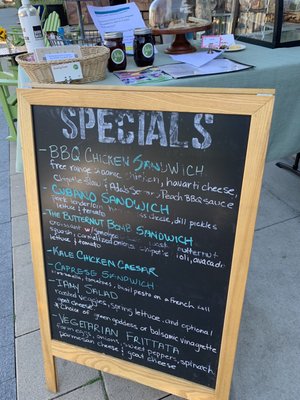 SPECIALS
-BBQ CHICKEN SANDWICH
Free range organic chicken, havarti cheese,
Chipotle Slaw & Peach BBQ sauce
-CUBANO SANDWICH
Pork tenderloin cheese, dill pickles
lettuce & tomato
-THE BUTTERNUT BOMB SANDWICH
croissant w/ butternut
squash, caramelized onions, aioli, avocado
lettuce & tomato
-KALE CHICKEN CAESAR
-CAPRESE SANDWICH
tomatoes, basil pesto on a french roll
SALAD
roasted veggies, spring lettuce and optional
goat cheese
& choice of green goddess or balsamic vinaigrette
-VEGETARIAN FRITTATA
Farm eggs, onions, sweet peppers, spinach
parmesan cheese & goat cheese